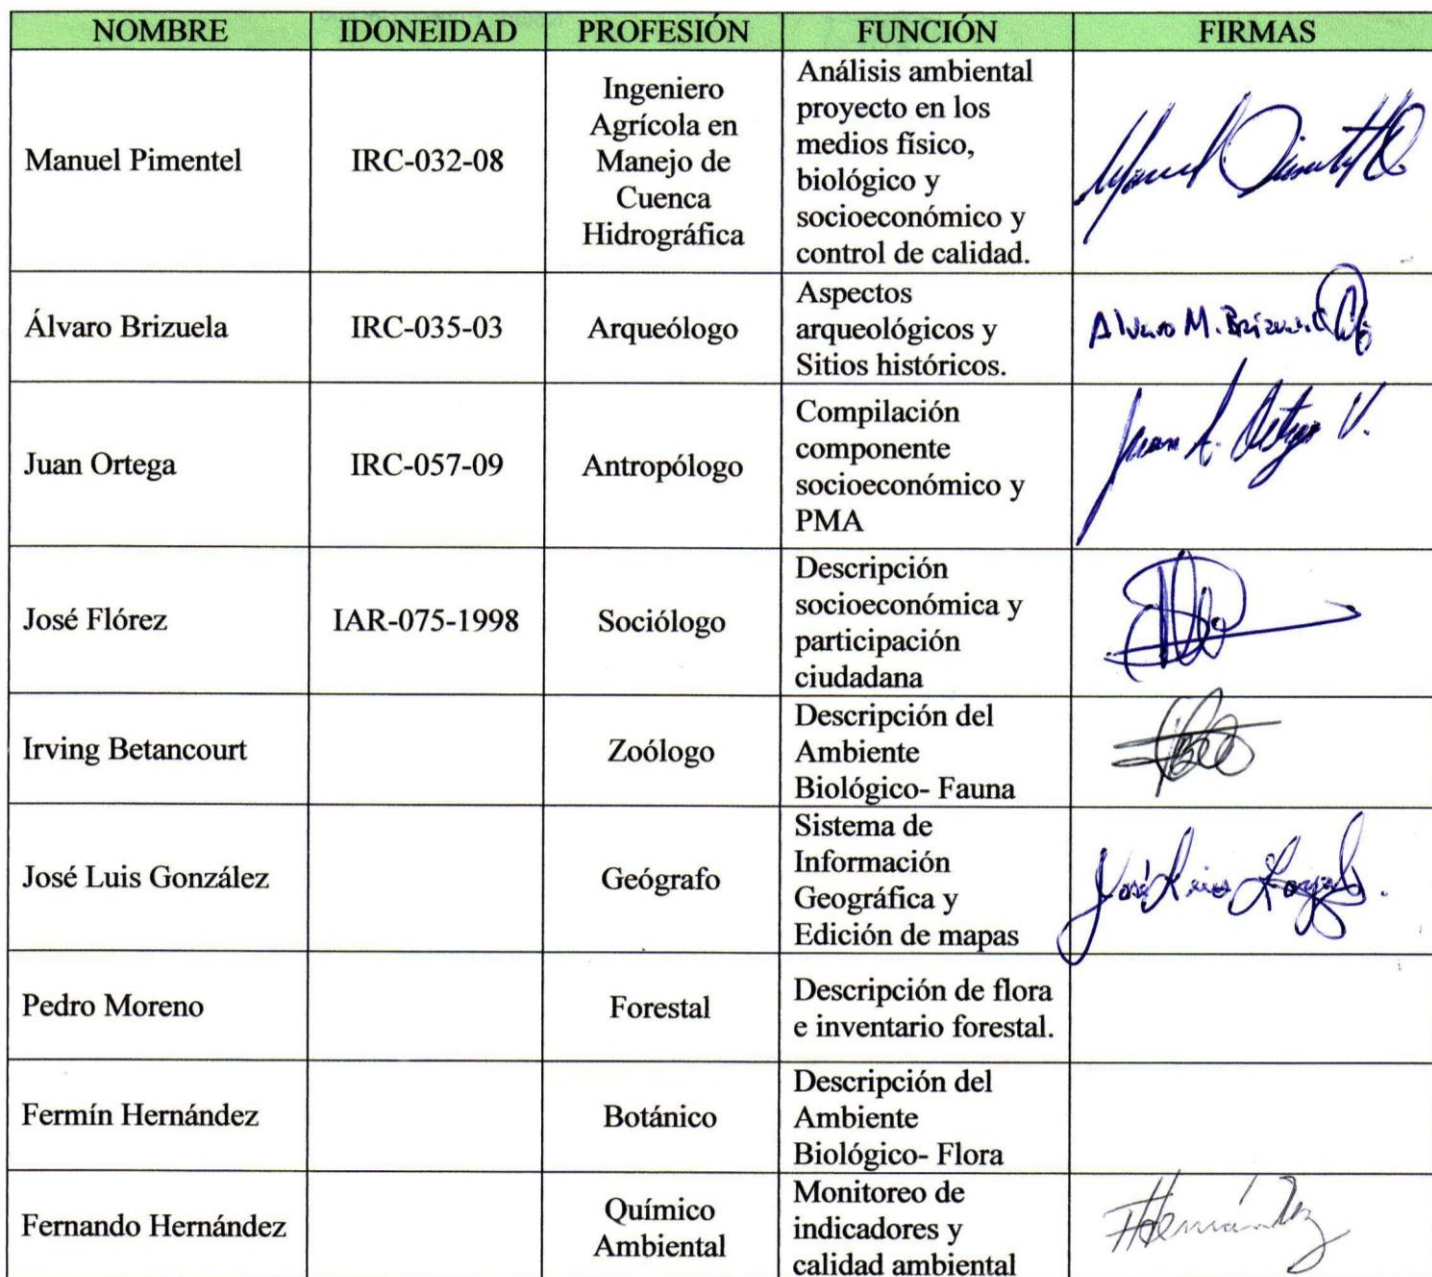 NOMBRE IDONEIDAD PROFESIÓN FUNCIÓN FIRMAS
Manuel Pimentel
IRC-032-08
Ingeniero
Agrícola en
Manejo de
Cuenca
Hidrográfica
Análisis ambiental
proyecto en los
medios físico,
biológico y
socioeconómico y
control de calidad.
Álvaro Brizuela
IRC-035-03
Arqueólogo
Aspectos
arqueológicos y
Sitios históricos.
Alvaro M.
Juan Ortega
IRC-057-09
Antropólogo
Compilación
componente
socioeconómico y
PMA
Juan A. Ortega V.
José Flórez
IAR-075-1998
Sociólogo
Descripción
socioeconómica y
participación
ciudadana
Irving Betancourt
Zoólogo
Descripción del
Ambiente
Biológico- Fauna
José Luis González
Geógrafo
Sistema de
Información
Geográfica y
Edición de mapas
José Luis
Pedro Moreno
Forestal
Descripción de flora
e inventario forestal.
Fermín Hernández
Botánico
Descripción del
Ambiente
Biológico- Flora
Fernando Hernández
Químico
Ambiental
Monitoreo de
indicadores y
calidad ambiental
FHernández